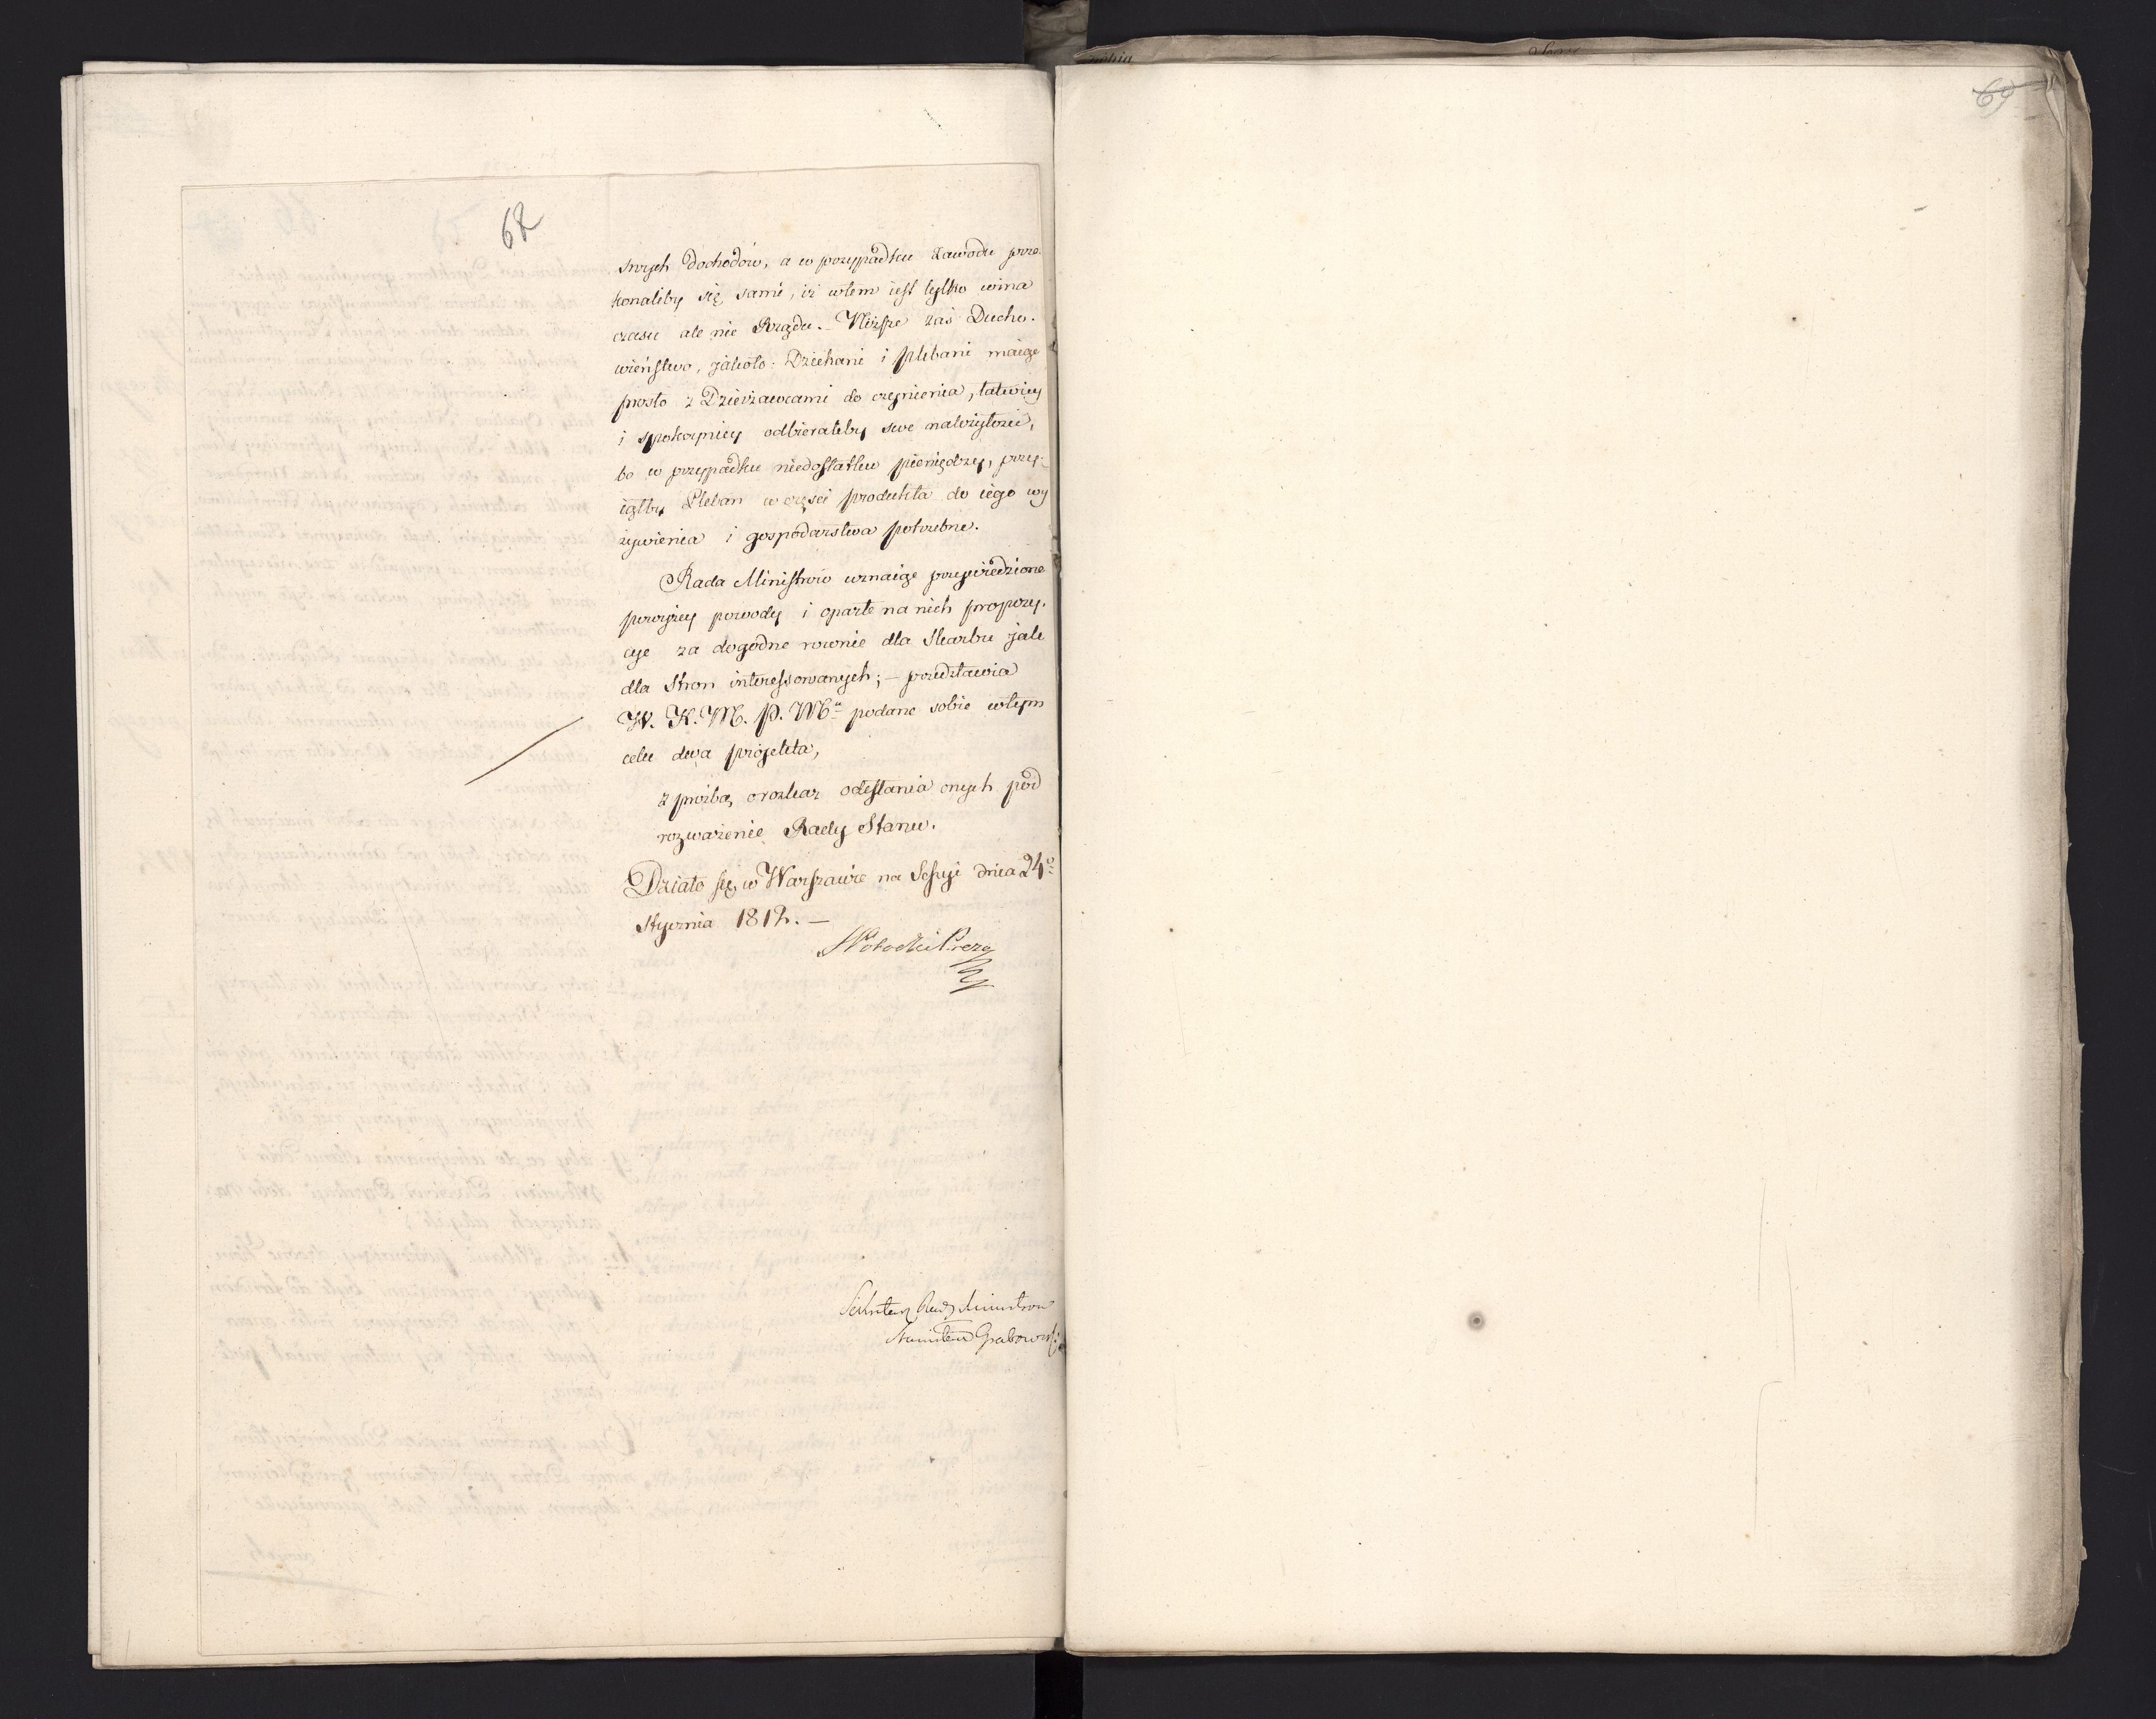 62
swych dochodów, a w przypadku zawodu prze-
konaliby się sami, iż wtem iest tylko wina
czasu ale nie Rządu. – Niższe zaś Ducho-
wieństwo, jakoto: Dziekani i plebani maiąc
prosto z Dzierzawcami do czynienia, łatwiey
i spokoyniey odbieraliby swe należytości,
bo w przypadku niedostatku pieniędzy, przy-
iąłby Pleban w części produkta do iego wy
żywienia i gospodarstwa potrzebne.
Rada Ministrów uznaiąc przywiedzione
powyżey powody i oparte na nich propozy-
cye za dogodne rownie dla Skarbu jak
dla Stron interessowanych; – przedstawia
W. K. M. P. M. podane sobie wtym
celu dwa projekta,
z prożbą o rozkaz odesłania onych pod
rozważenie Rady Stanu.
Działo się w Warszawie na Sessyi dnia 24º
Stycznia 1812. –
SPotocki Prezes
Sekretarz Rady Ministrow
Stanisław Grabowski
69